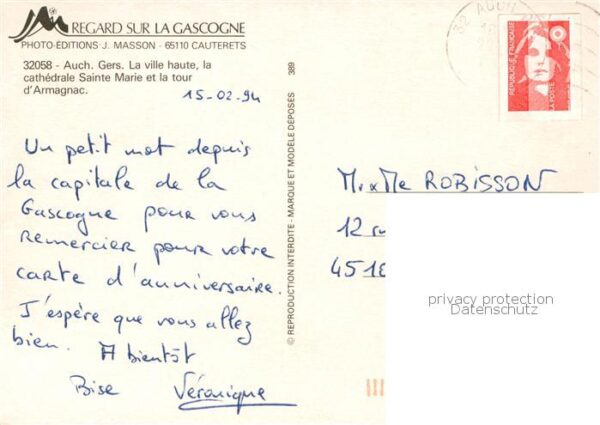 REGARD SUR LA GASCOGNE
PHOTO-ÉDITIONS J. MASSON - 65110 CAUTERETS
32058 - Auch. Gers. La ville haute, la
cathédrale Sainte Marie et la tour
d'Armagnac.
15-02-94
Un petit mot depuis
la capitale de la
Gascogne pour vous
remercier pour votre
carte d'anniversaire.
J'espère que vous allez
bien. A bientôt
Bise Véronique
© REPRODUCTION INTERDITE - MARQUE ET MODÈLE DÉPOSÉS
389
32 AUCH
RÉPUBLIQUE FRANÇAISE
LA POSTE
M. x Me ROBISSON
12
4518
privacy protection
Datenschutz